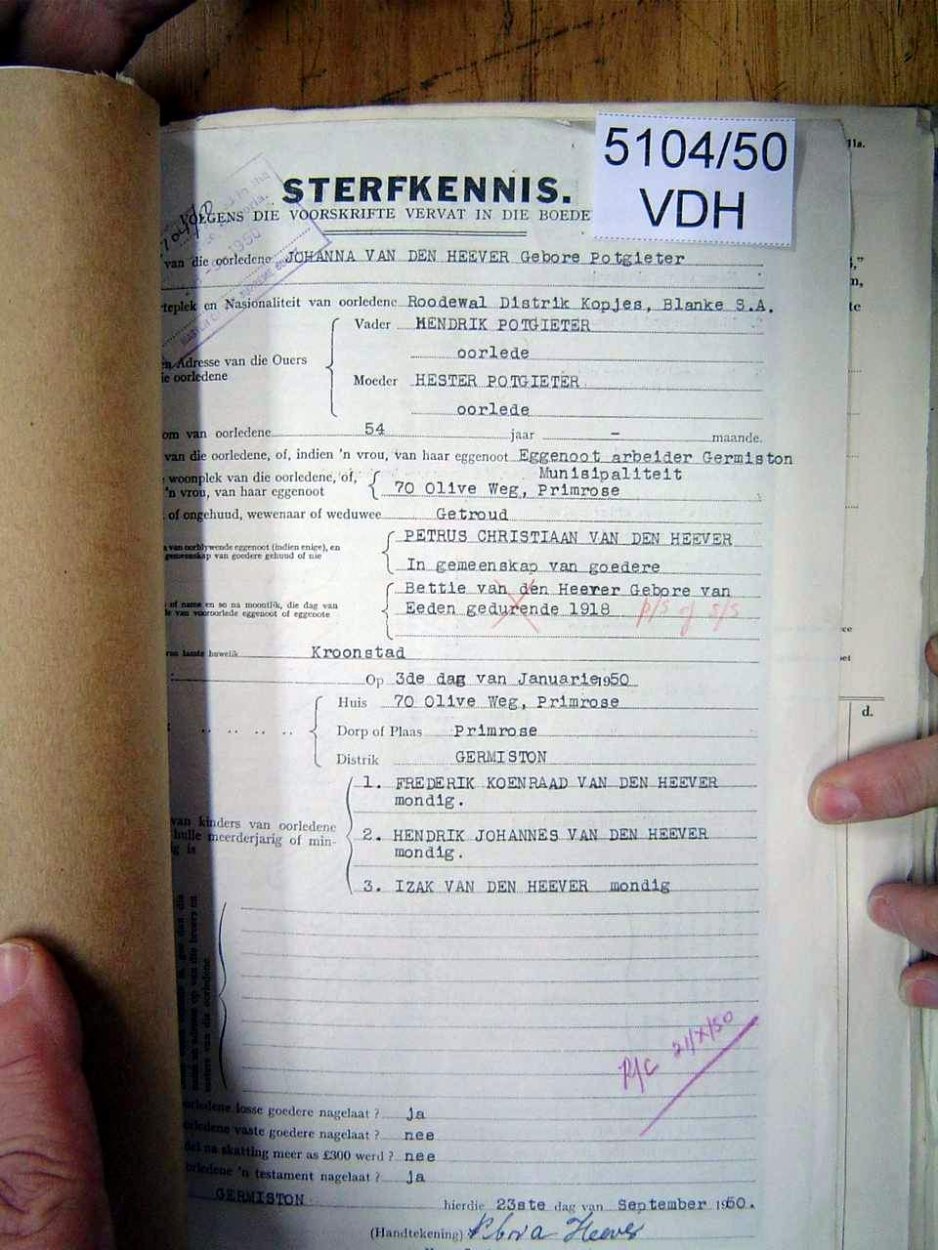 5104/50
VDH
11a.
STERFKENNIS.
VOLGENS DIE VOORSKRIFTE VERVAT IN DIE BOEDE
1950
van die oorledene JOHANNA VAN DEN HEEVER Gebore Potgieter
teplek en Nasionaliteit van oorledene Roodewal Distrik Kopjes, Blanke S.A.
Vader HENDRIK POTGIETER
oorlede
en Adresse van die Ouers
ie oorledene
Moeder HESTER POTGIETER
oorlede
om van oorledene 54 jaar - maande.
van die oorledene, of, indien 'n vrou, van haar eggenoot Eggenoot arbeider Germiston
Munisipaliteit
woonplek van die oorledene, of,
'n vrou, van haar eggenoot 70 Olive Weg, Primrose
of ongehuud, wewenaar of weduwee Getroud
PETRUS CHRISTIAAN VAN DEN HEEVER
van oorblywende eggenoot (indien enige), en
gemeenskap van goedere gehuud of nie
In gemeenskap van goedere
Bettie van den Heerer Gebore van
of name en so na moontlik, die dag van
Eeden gedurende 1918 p/s of s/s
de van vooroorlede eggenoot of eggenote
laaste huwelik Kroonstad
Op 3de dag van Januarie 1950
Huis 70 Olive Weg, Primrose
Dorp of Plaas Primrose
Distrik GERMISTON
d.
1. FREDERIK KOENRAAD VAN DEN HEEVER
mondig.
van kinders van oorledene
hulle meerderjarig of min-
g is
2. HENDRIK JOHANNES VAN DEN HEEVER
mondig.
3. IZAK VAN DEN HEEVER mondig
R/C 21/X/50
orledene losse goedere nagelaat? ja
orledene vaste goedere nagelaat? nee
del na skatting meer as £300 werd? nee
orledene 'n testament nagelaat? ja
GERMISTON hierdie 23ste dag van September 1950.
(Handtekening) Heever